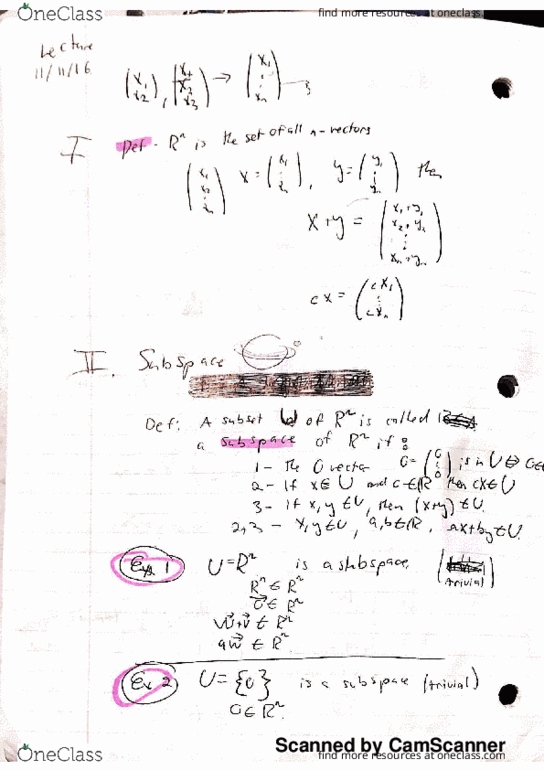 OneClass
find more resources at oneclass.
Lecture
11/11/16
(x₁ x₂), (x₁ x₂ x₃) → (x₁ ⋮ xₙ)
I Def - Rⁿ is the set of all n-vectors
(x₁ x₂ ⋮ xₙ) x = (x₁ ⋮ xₙ), y = (y₁ ⋮ yₙ) then
x+y = (x₁+y₁ x₂+y₂ ⋮ xₙ+yₙ)
cx = (cx₁ ⋮ cxₙ)
II. Subspace
Def: A subset U of Rⁿ is called
a subspace of Rⁿ if:
1- the 0 vector 0 = (0 ⋮ 0) is in U ⇔ 0∈
2- if x∈U and c∈R then cx∈U
3- if x,y∈U, then (x+y)∈U
2,3 - x,y∈U, a,b∈R, ax+by∈U.
Ex 1 U=Rⁿ is a subspace (trivial)
Rⁿ ∈ Rⁿ
0⃗ ∈ Rⁿ
w⃗+v⃗ ∈ Rⁿ
aw⃗ ∈ Rⁿ.
Ex 2 U = {0} is a subspace (trivial)
0∈Rⁿ.
Scanned by CamScanner
OneClass
find more resources at oneclass.com